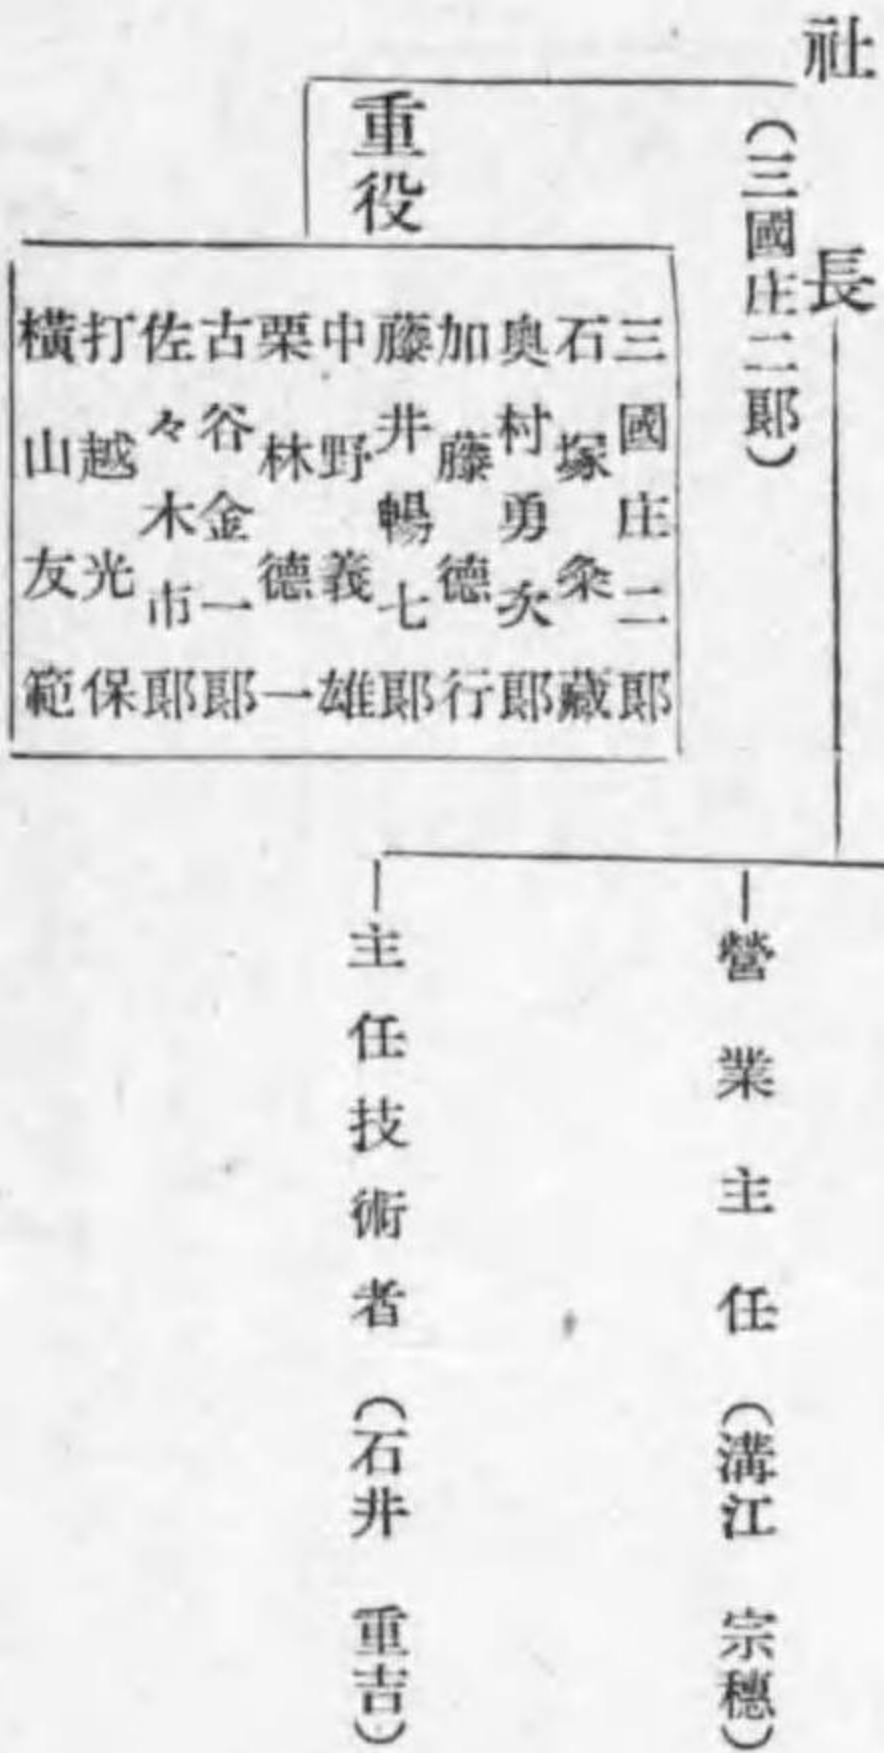 社長
(三國庄二郎)
重役
三國庄二郎
石塚粂藏
奥村勇次郎
加藤德行
藤井暢七郎
中野義雄
栗林德一
古谷金一郎
佐々木市郎
打越光保
横山友範
營業主任(溝江 宗穗)
主任技術者(石井 重吉)